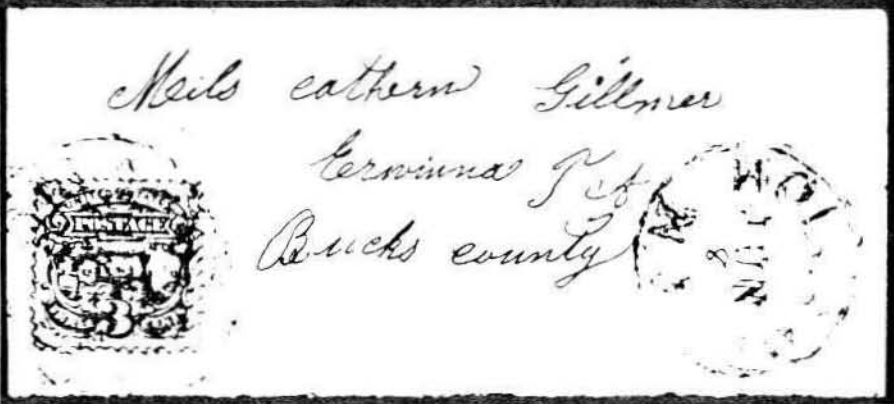 Meils cathern Gillmer
Erwinna P of
Bucks county
POSTAGE
3
8